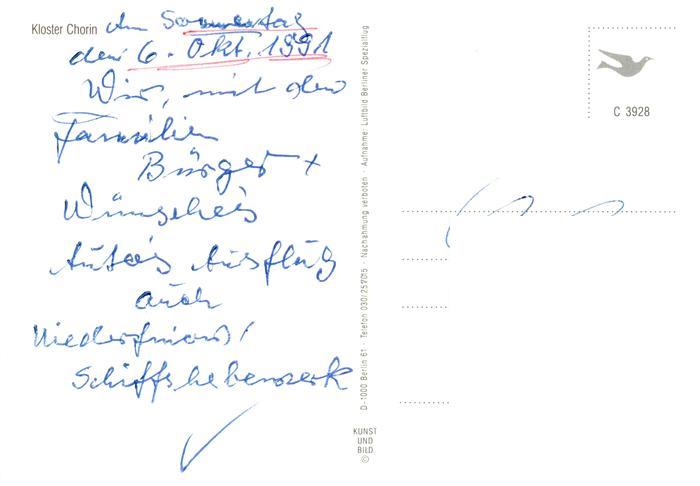 Kloster Chorin
Am Sonnertag
den 6. Okt. 1991
Wir, mit den
Familien
Bürger +
Wünsche's
Auto's Ausflug
auch
Niederfinow/
Schiffshebewerk
D-1000 Berlin 61 · Telefon 030/7857015 · Nachahmung verboten · Aufnahme: Luftbild Berliner Spezialflug
KUNST
UND
BILD
©
C 3928